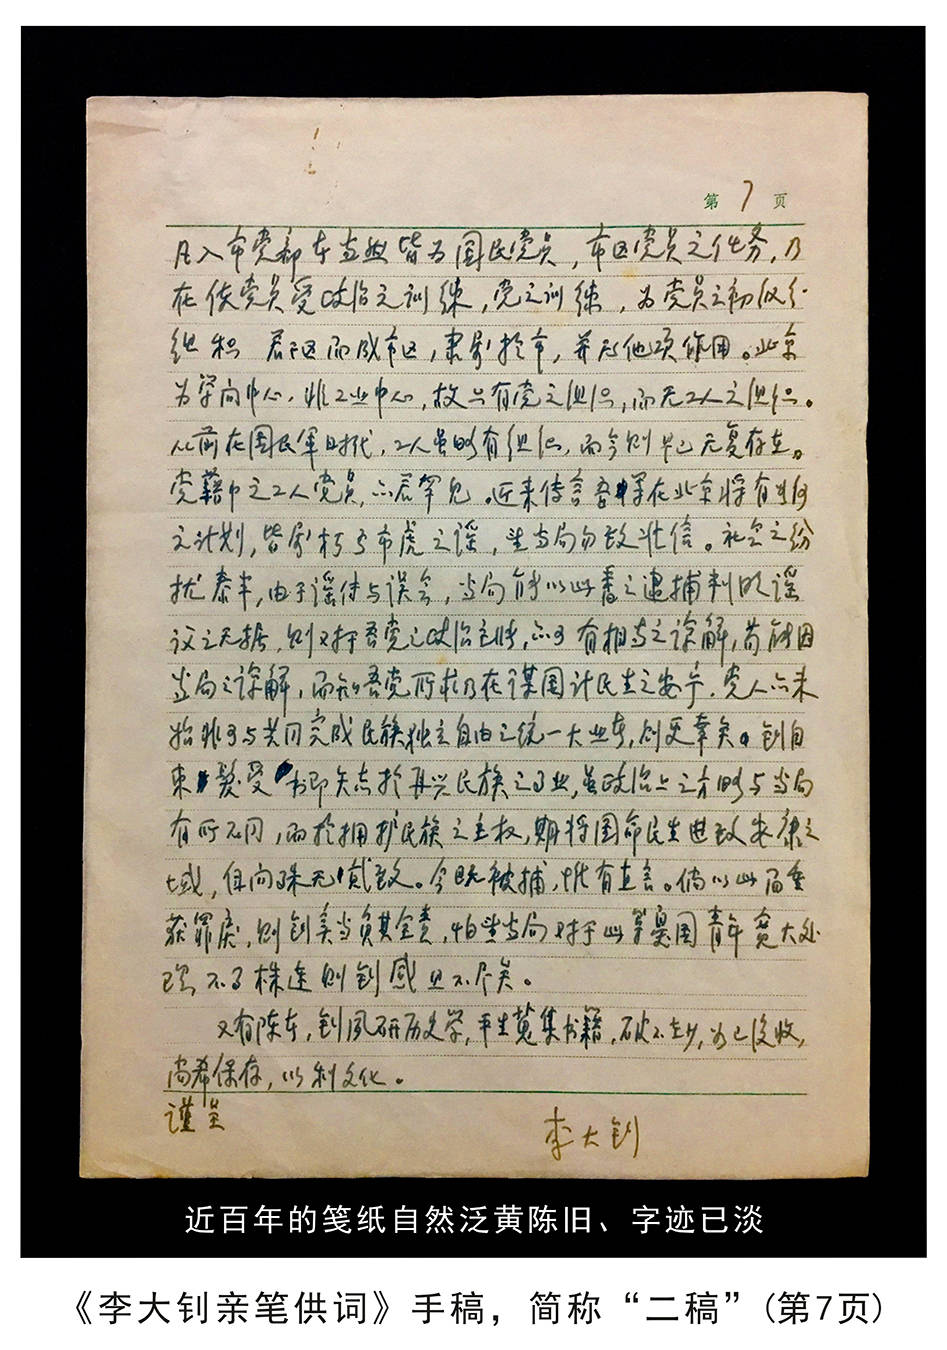 第7页
凡入市党部者当然皆为国民党员，市区党员之任务，乃
在使党员受政治之训练，党之训练，为党员之初级之
组织 居区而成市区，隶属于市，并无他项作用。北京
为学问中心，非工业中心，故只有党之组织，而无工人之组织。
从前在国民军时代，工人虽略有组织，而今则早已无复存在。
党籍中之工人党员，亦居罕见。近来传言吾辈在北京将有如何
之计划，皆属杯弓市虎之谣，望当局勿致壮信。社会之纷
扰泰半，由于谣传与误会，当局能以此番之逮捕判明谣
议之无据，则对于吾党之政治主张，亦可有相当之谅解，苟能因
当局之谅解，而知吾党所求乃在谋国计民生之安宁，党人亦未
始非可与共同完成民族独立自由之统一大业者，则更幸矣。钊自
束发受书即矢志于再兴民族之事业，虽政治上之方略与当局
有所不同，而于拥护民族之主权，期将国命民生进致安康之
域，但向殊无贰致。今既被捕，惟有直言。倘以此而重
获罪戾，则钊实当负其全责，惟望当局对于此等爱国青年宽大处
理，不事株连则钊感且不尽矣。
又有陈者，钊夙研历史学，平生蒐集书籍，颇不少，如已没收，
尚希保存，以利文化。
谨呈
李大钊
近百年的笺纸自然泛黄陈旧、字迹已淡
《李大钊亲笔供词》手稿，简称“二稿”(第7页)